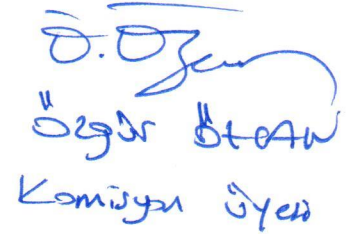 Ö. Özcan
Özgür ÖZCAN
Komisyon üyesi